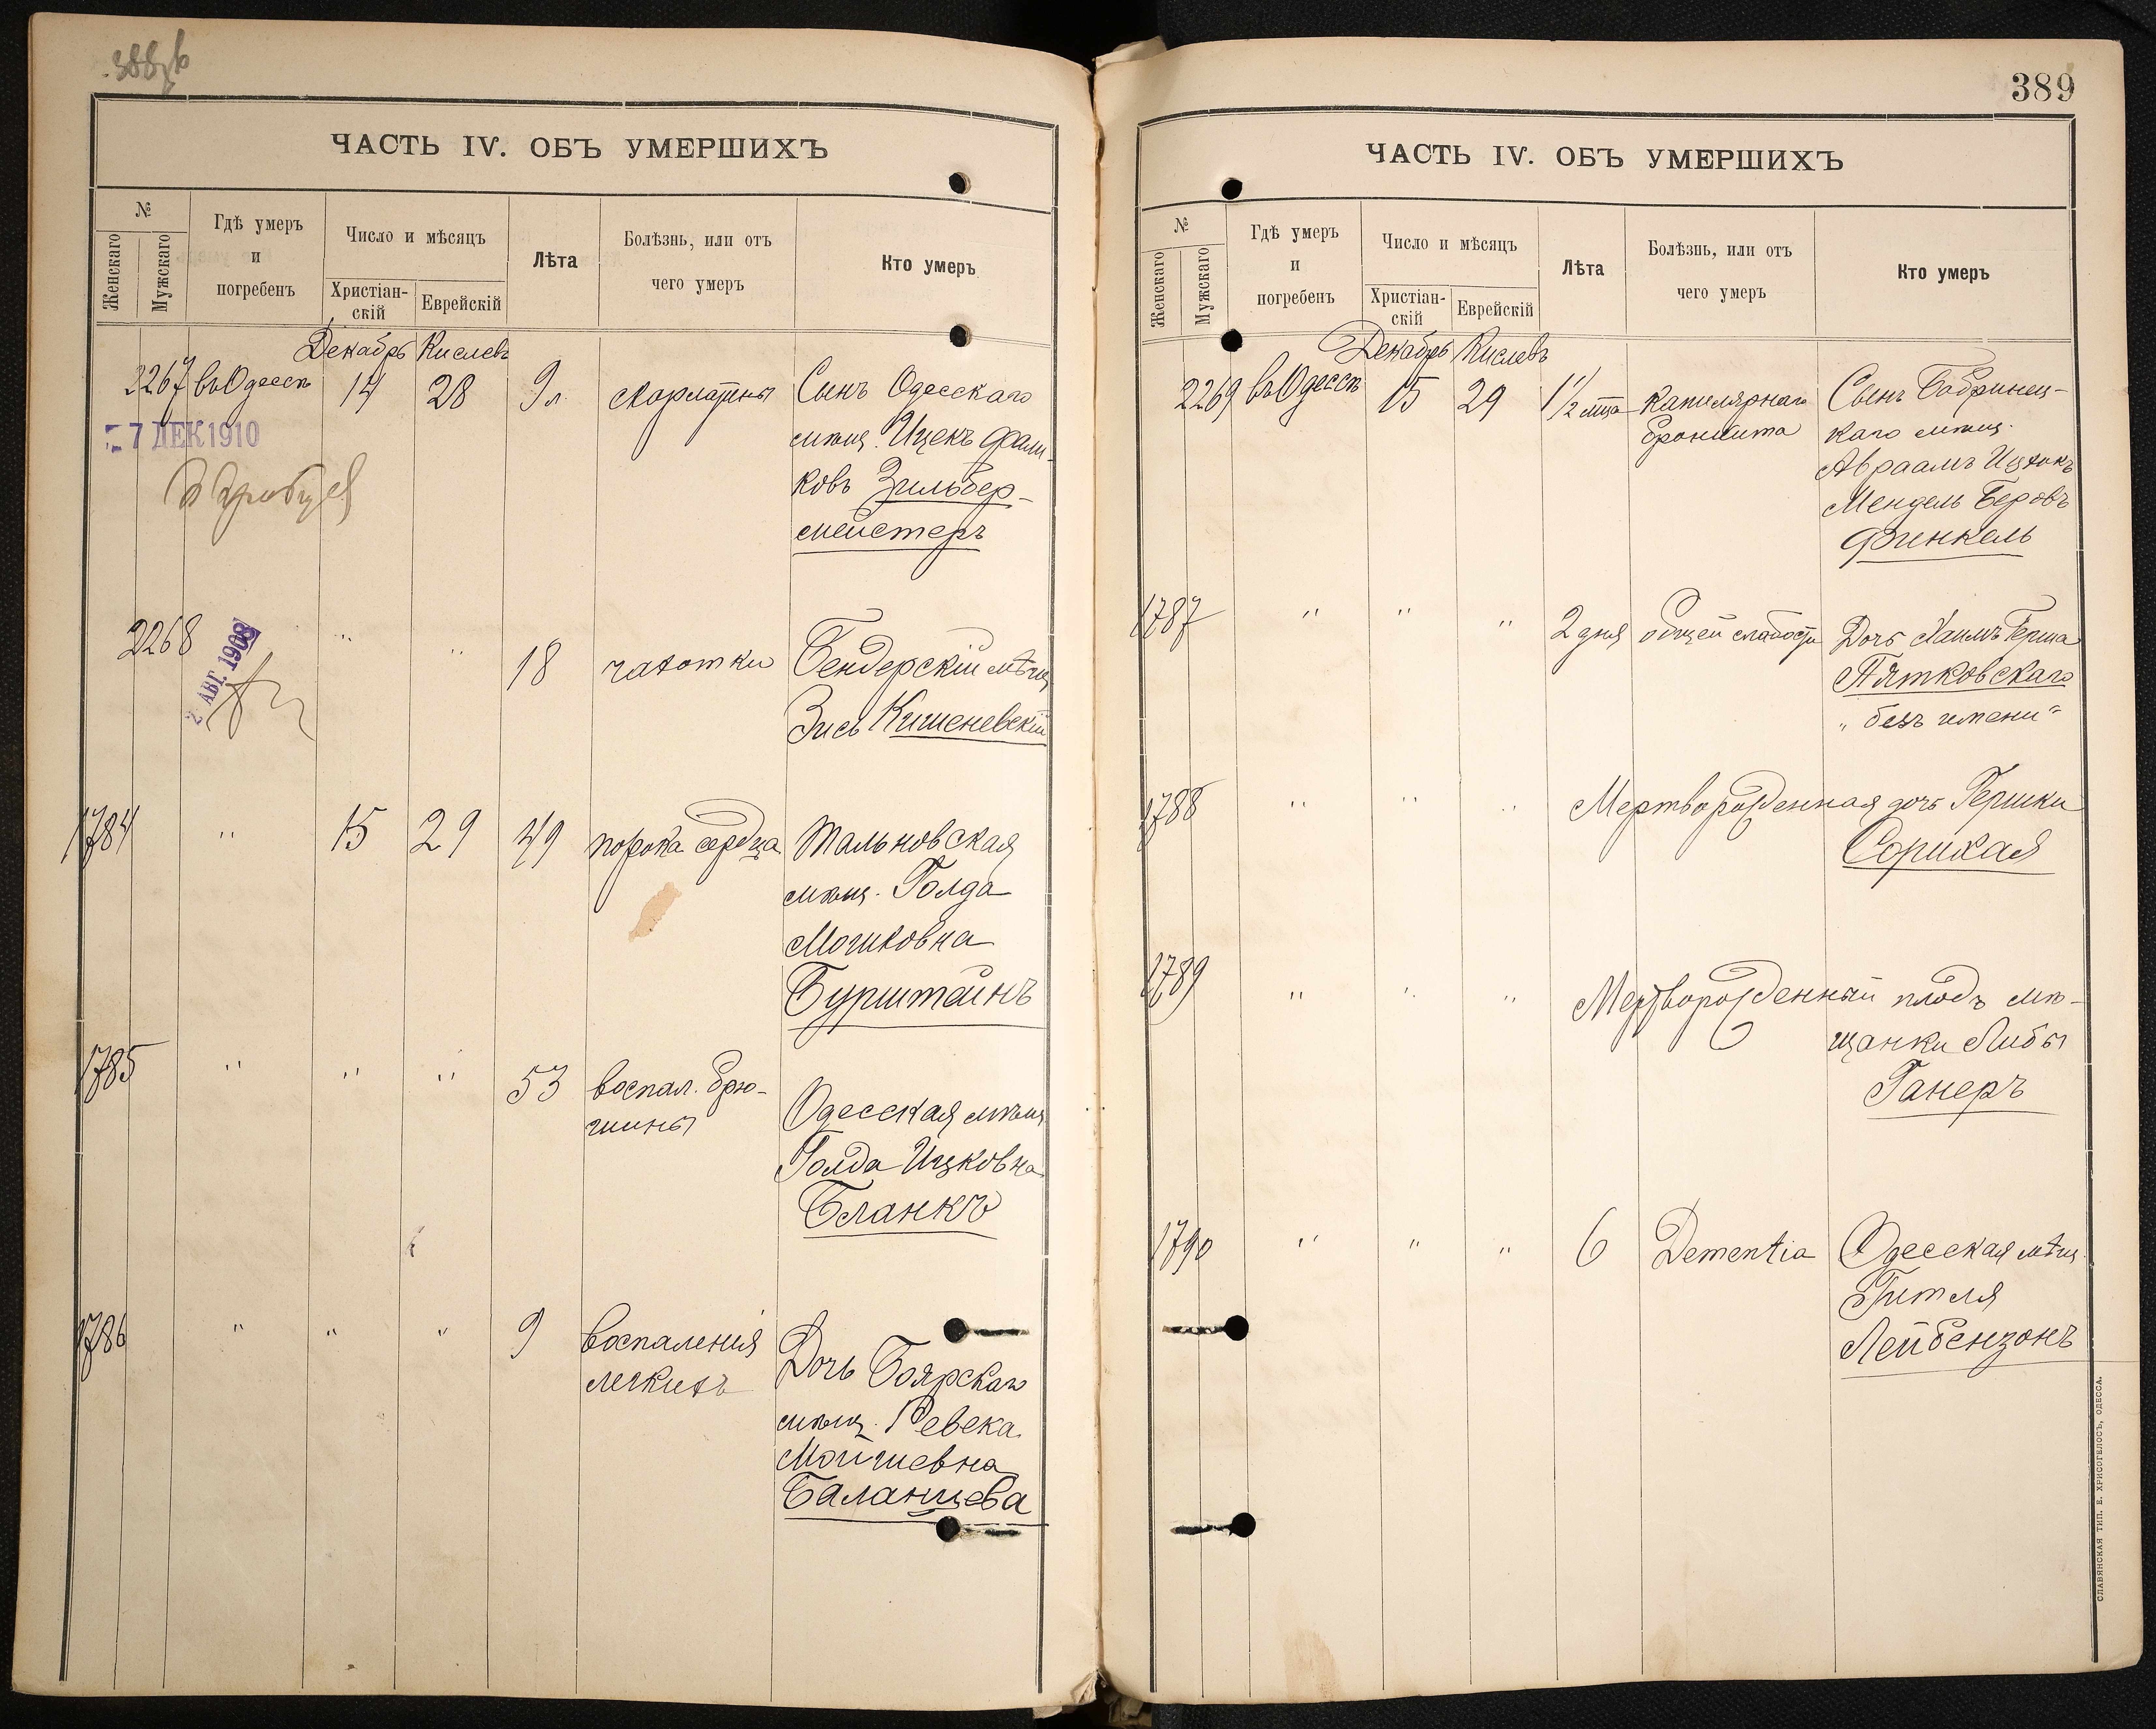 ЧАСТЬ IV. ОБЪ УМЕРШИХЪ
№
Женскаго
Мужскаго
Гдѣ умеръ
и
погребенъ
Число и мѣсяцъ
Христіан-
скій
Еврейскій
Лѣта
Болѣзнь, или отъ
чего умеръ
Кто умеръ
Декабрь Кислевъ
2267 въ Одессѣ 14 28 9 л. скарлатины Сынъ Одесскаго
мѣщ. Ицекъ Фали-
ковъ Зильбер-
мейстеръ
7 ДЕК 1910
2268 " " 18 чахотки Бендерскій мѣщ
Зись Кишеневскій
2 АВГ. 1908
1784 " 15 29 49 порока сердца Тальновская
мѣщ. Голда
Мошковна
Бурштейнъ
1785 " " " 53 воспал. брю-
шины
Одесская мѣщ
Голда Ицковна
Бланкъ
1786 " " " 9 воспаленія
легкихъ
Дочь Боярскаго
мѣщ. Ревека
Мойшевна
Баланцева
389
ЧАСТЬ IV. ОБЪ УМЕРШИХЪ
№
Женскаго
Мужскаго
Гдѣ умеръ
и
погребенъ
Число и мѣсяцъ
Христіан-
скій
Еврейскій
Лѣта
Болѣзнь, или отъ
чего умеръ
Кто умеръ
Декабрь Кислевъ
2269 въ Одессѣ 15 29 1 1/2 мца капилярнаго
бронхита
Сынъ Бобринец-
каго мѣщ.
Авраамъ Ицхокъ
Мендель Беровъ
Финкель
1787 " " " 2 дня общей слабости Дочь Хаимъ Герша
Пятковскаго
„ безъ имени "
1788 " " " Мертворожденная дочь Гершки
Сорикая
1789 " " " Мертворожденный плодъ мѣ-
щанки Либы
Ганеръ
1790 " " " 6 Dementia Одесская мѣщ.
Гителя
Лейбензонъ
СЛАВЯНСКАЯ ТИП. Е. ХРИСОГЕЛОСЪ, ОДЕССА.